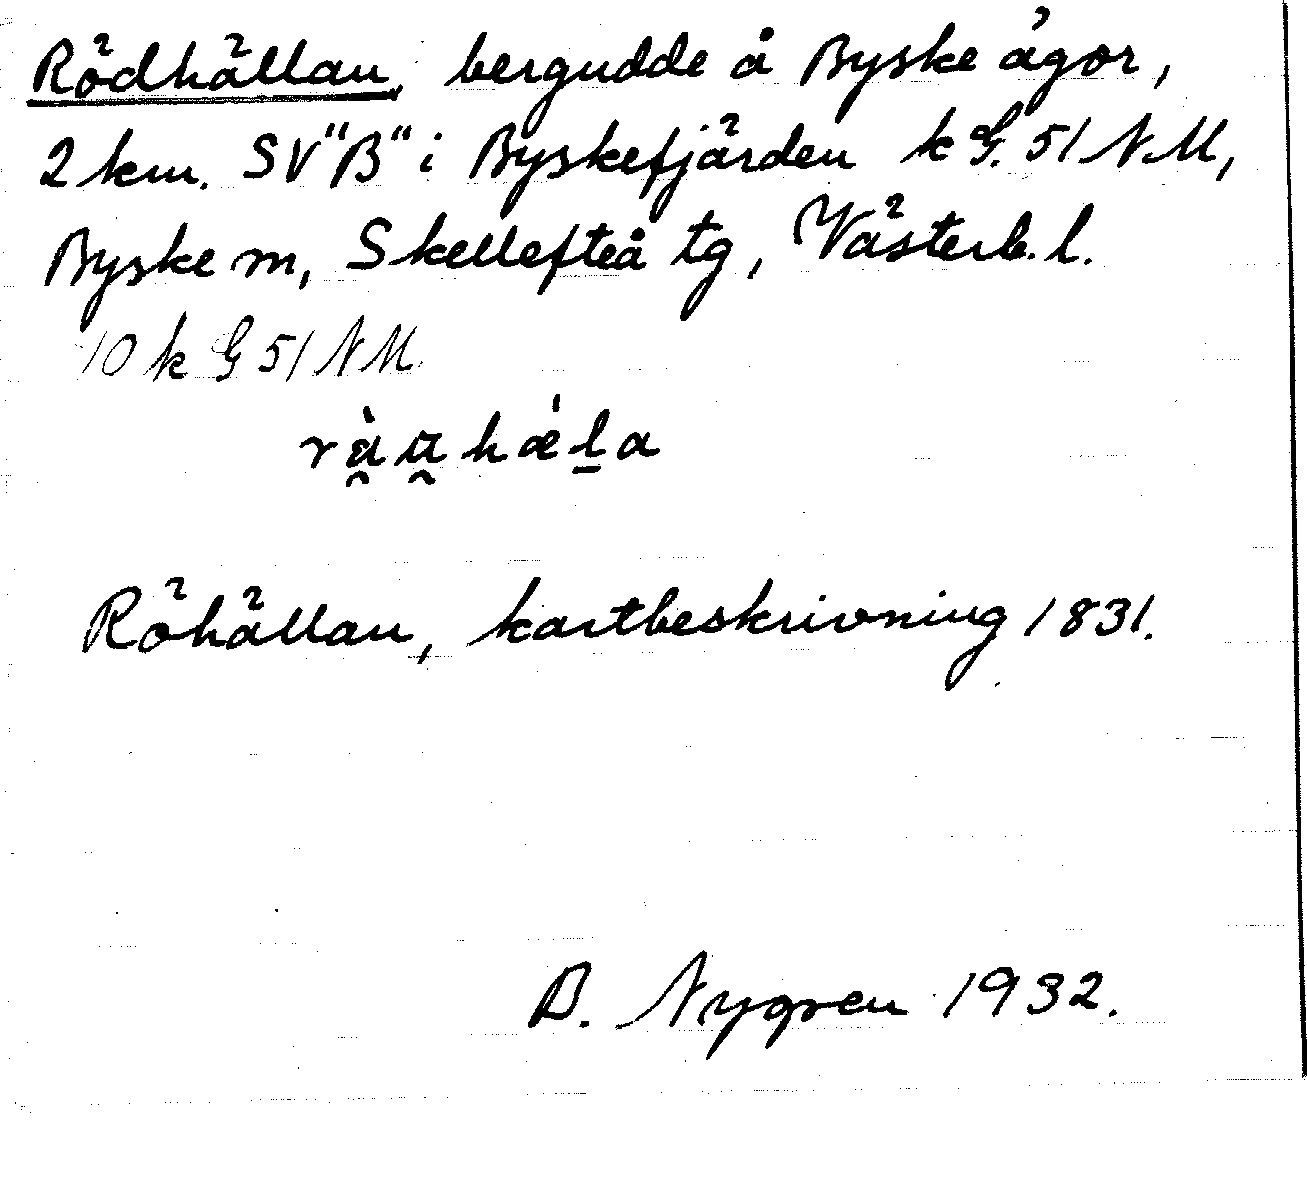 Rödhällan, bergudde å Byske ägor,
2 km. SV "B" i Byskefjärden k G. 51 N M,
Byske m, Skellefteå tg, Västerb. l.
10 k G 51 N M
Röhällan, kartbeskrivning 1831.
B. Nygren 1932.